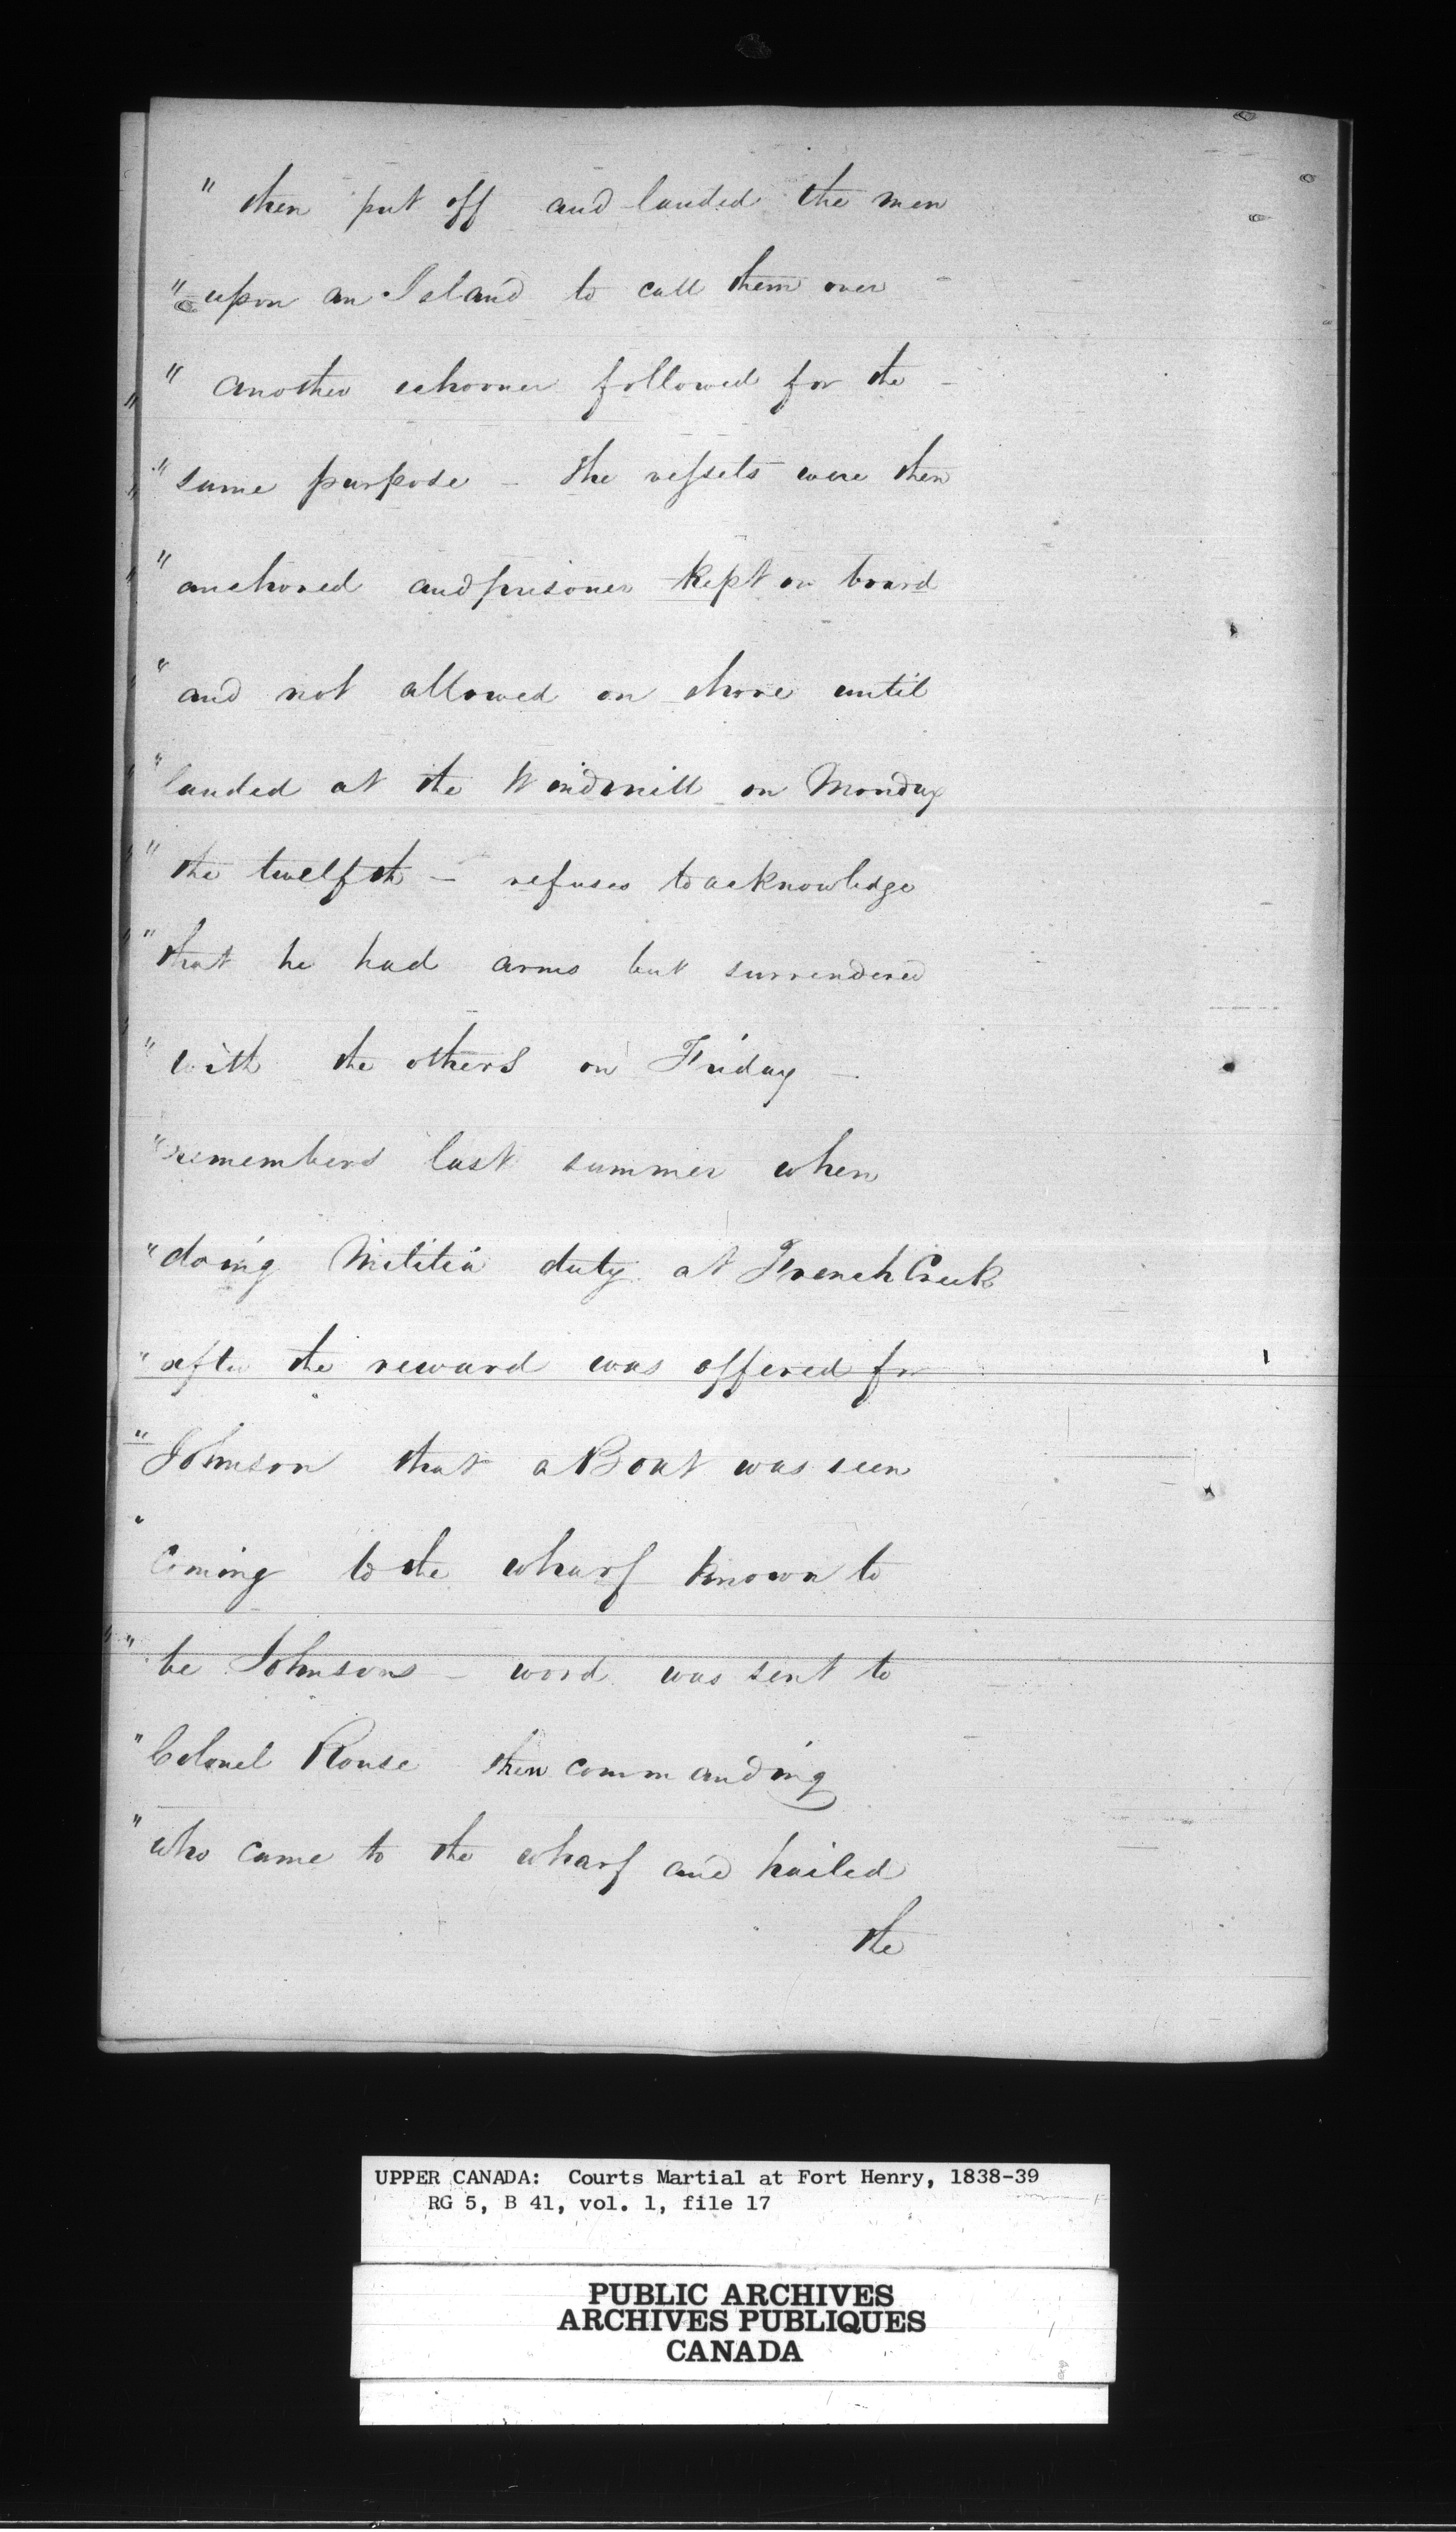 " then put off and landed the men
" upon an Island to call them over -
" another schooner followed for the -
" same purpose - The vessels were then
" anchored and prisoner kept on board
" and not allowed on shore until
" landed at the Windmill on Monday
" the twelfth - refuses to acknowledge
" that he had arms but surrendered
" with the others on Friday -
" remembers last summer when
" doing Militia duty at French Creek
" after the reward was offered for
" Johnson that a Boat was seen
" Coming to the wharf known to
" be Johnsons - word was sent to
" Colonel Rouse then commanding
" who came to the wharf and hailed
the
UPPER CANADA: Courts Martial at Fort Henry, 1838-39
RG 5, B 41, vol. 1, file 17
PUBLIC ARCHIVES
ARCHIVES PUBLIQUES
CANADA